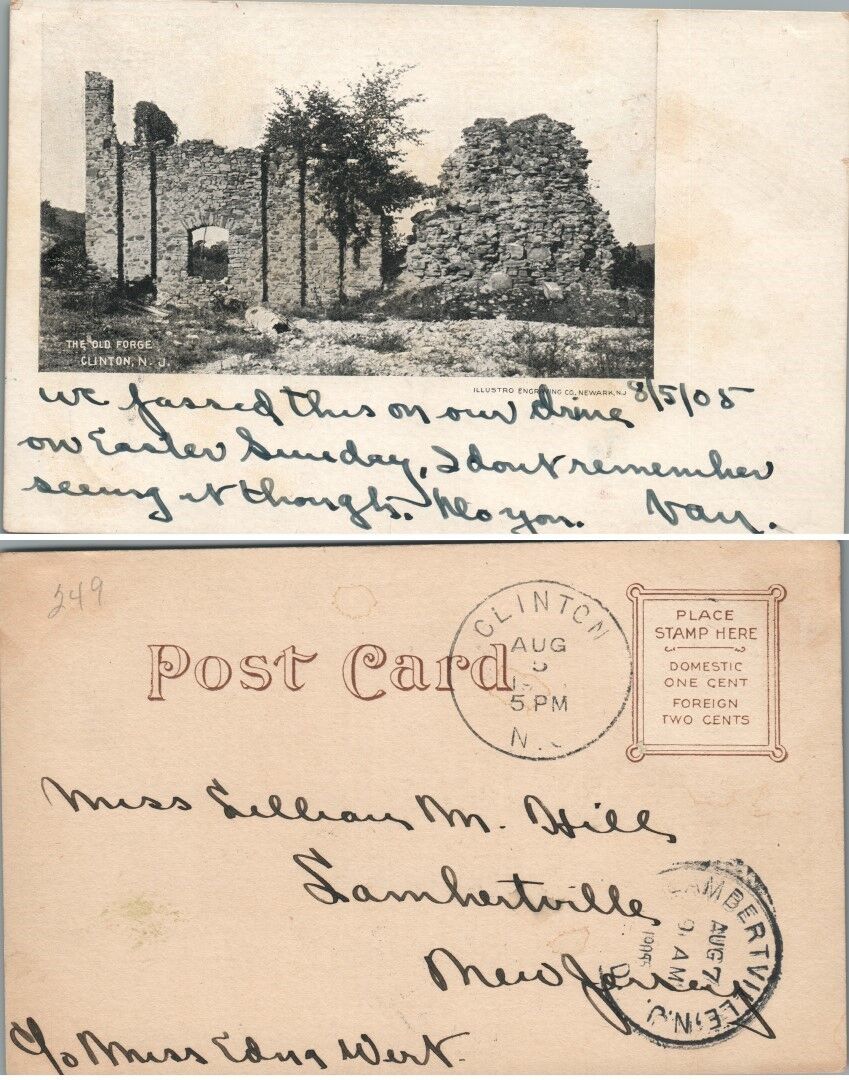 THE OLD FORGE
CLINTON, N. J.
ILLUSTRO ENGRAVING CO. NEWARK, N.J.
8/5/05
we passed this on our drive
on Easter Sunday, I dont remember
seeing it though. Do you. Van.
249
Post Card
CLINTON
AUG
5
5 PM
N.J
PLACE
STAMP HERE
DOMESTIC
ONE CENT
FOREIGN
TWO CENTS
Miss Lillian M. Hills
Lambertville
New Jersey
C/o Miss Edna Wert.
LAMBERTVILLE, N.J.
AUG 7
9 AM
1905